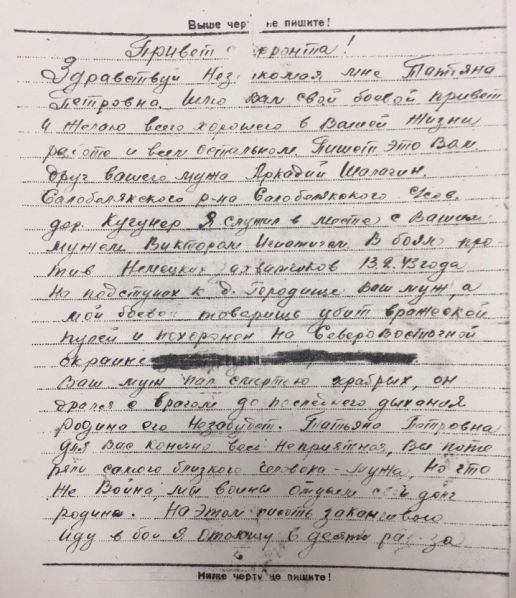 Выше чер не пишите!
Привет с фронта!
Здравствуй Незнакомая мне Татьяна
Петровна, шлю Вам свой боевой привет
и желаю всего хорошего в Вашей жизни
работе и всем остальном. Пишет это Вам
друг вашего мужа Аркадий Шалагин.
р-на
дер. Кугунер Я служил в месте с Вашим
мужем Виктором Игнатичем. В боях про-
тив Немецких захватчиков 13.2.43 года
На подступах к д. Городище Ваш муж, а
мой боевой товарищь убит вражеской
пулей и похоронен на Северо Восточной
окраине
Ваш муж пал смертью храбрых, он
дрался с врагом до последнего дыхания
родина его Незабудет. Татьяна Петровна
для Вас конечно весть неприятная, Вы поте-
ряли самого близкого человека - мужа, но что
же Война, мы воины отдаем свой долг
родине. На этом писать заканчиваю
Иду в бой Я отомщу в десять раз за
Ниже черту не пишите!